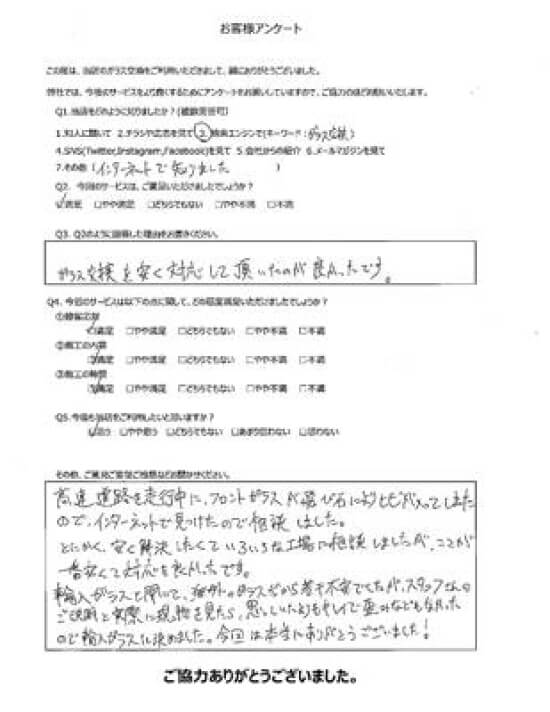 お客様アンケート
この度は、当店のガラス交換をご利用いただきまして、誠にありがとうございました。
弊社では、今後のサービスをより良くするためにアンケートをお願いしていますので、ご協力のほどお願いいたします。
Q1.当店をどのように知りましたか？(複数回答可)
1.知人に聞いて 2.チラシや広告を見て 3.検索エンジンで(キーワード：ガラス交換)
4.SNS(Twitter,Instagram,Facebook)を見て 5.会社からの紹介 6.メールマガジンを見て
7.その他 (インターネットで知りました )
Q2. 今回のサービスは、ご満足いただけましたでしょうか？
☑満足 □やや満足 □どちらでもない □やや不満 □不満
Q3. Q2のように回答した理由をお書きください。
ガラス交換を安く対応して頂いたのが良かったです。
Q4. 今回のサービスは以下の点に関して、どの程度満足いただけましたでしょうか？
①接客応対
☑満足 □やや満足 □どちらでもない □やや不満 □不満
②施工の内容
☑満足 □やや満足 □どちらでもない □やや不満 □不満
③施工の時間
☑満足 □やや満足 □どちらでもない □やや不満 □不満
Q5.今後も当店をご利用したいと思いますか？
☑思う □やや思う □どちらでもない □あまり思わない □思わない
その他、ご意見ご要望ご感想などお聞かせください。
高速道路を走行中に、フロントガラスが飛び石によりヒビが入ってしまた
ので、インターネットで見つけたので相談しました。
とにかく、安く解決したくていろいろな工場に相談しましたが、ここが
一番安くて対応も良かったです。
輸入ガラスと聞いて、海外のガラスだから若干不安でしたが、スタッフさんの
ご説明と実際に現物を見たら、思っていたよりもキレイで歪みなどもなかった
ので輸入ガラスに決めました。今回は本当にありがとうございました！
ご協力ありがとうございました。